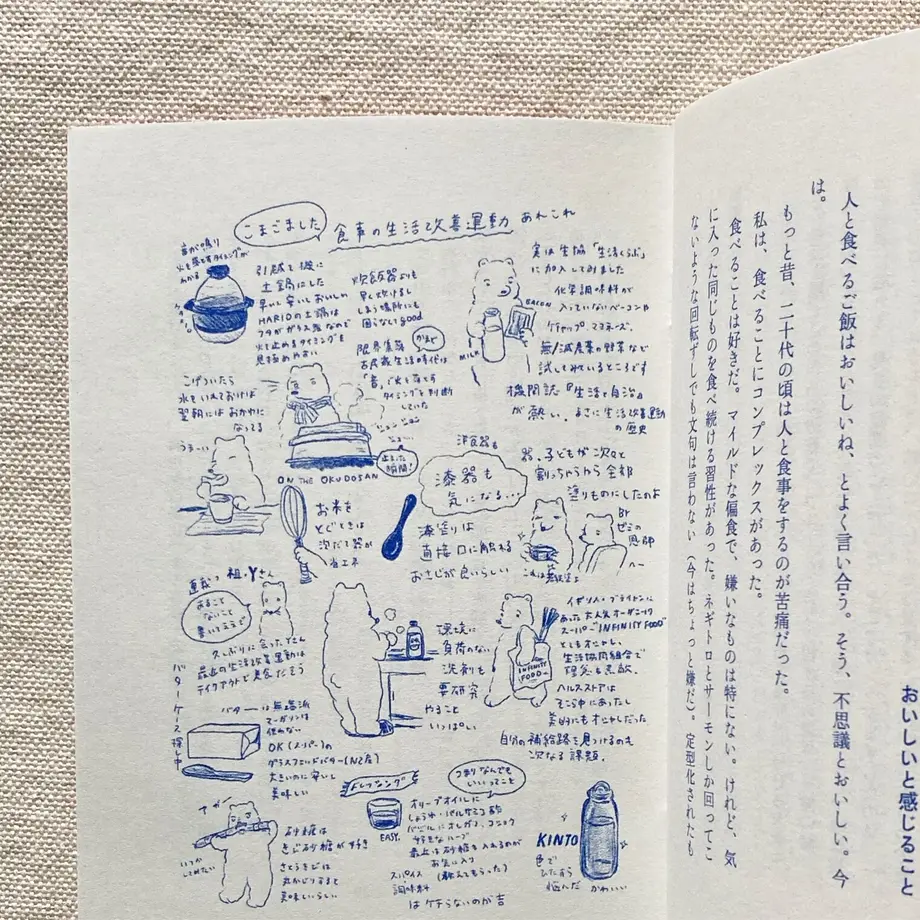 こまごました
食事の生活改善運動 あれこれ
音が鳴り
火を落とすタイミングが
わかる
引越を機に
土鍋にした
早い 安い おいしい
HARIOの土鍋は
フタがガラス製なので
火を止めるタイミングを
見極めやすい
炊飯器よりも
早く炊けるし
しまう場所にも
困らなくてgood
限界集落
かまど
古民家生活時代は
「音」で火を落とす
タイミングを判断
していた
ジュンジュン
止まった
瞬間!
ON THE OKUDOSAN
実は生協「生活くらぶ」
に加入してみました
化学調味料が
入っていないベーコンや
ケチャップ、マヨネーズ、
無/減農薬の野菜など
試してみているところです
BACON
MILK
機関誌『生活と自治』
が熱い。まさに生活改善運動
の歴史
こげついたら
水をいれておけば
翌朝には おかゆに
なってる
うまーい
お米を
とぐときは
泡だて器が
省エネ
洋食器も
漆器も
気になる…
漆塗りは
直接口に触れる
おさじが良いらしい
器、子どもが次々と
割っちゃうから全部
塗りものにしたのよ
BY
ゼミの
恩師
へ〜
直感つ 祖・Yさん
あること
ないこと
書いてそうで
久しぶりに会ったYさん
最近の生活改善運動は
テイクアウトで昼食だそう
バターケース探し中
バターは無塩派
マーガリンは
使わない
OK(スーパー)の
グラスフェッドバター(NZ産)
大きいのに安いし
美味しい
環境に
負荷のない
洗剤も
要研究
やること
いっぱい。
イギリス・ブライトンに
あった大人気オーガニック
スーパー"INFINITY FOOD"
とてもオシャレ。
生活協同組合で
理念も素敵。
ヘルスストアは
そこら中にあったし
美的にもオシャレだった
自分の補給路を見つけるのも
次なる課題。
INFINITY
FOOD
いつか
してみたい
砂糖は
きび砂糖が好き
さとうきびは
丸かじりすると
美味しいらしい
ドレッシング
つまりなんでも
いいってこと
EASY.
オリーブオイルに
しょうゆ・バルサミコ酢
バジルにオレガノ、コショウ
好きなハーブ
最近は砂糖を入れるのが
お気に入り
(教えてもらった)
スパイス
調味料
はケチらないのが吉
KINTO
色で
ひたすら
悩んだ
かわいい
おいしいと感じること
人と食べるご飯はおいしいね、とよく言い合う。そう、不思議とおいしい。今
は。
もっと昔、二十代の頃は人と食事をするのが苦痛だった。
私は、食べることにコンプレックスがあった。
食べることは好きだ。マイルドな偏食で、嫌いなものは特にない。けれど、気
に入った同じものを食べ続ける習性があった。ネギトロとサーモンしか回ってこ
ないような回転ずしでも文句は言わない（今はちょっと嫌だ）。定型化されたも